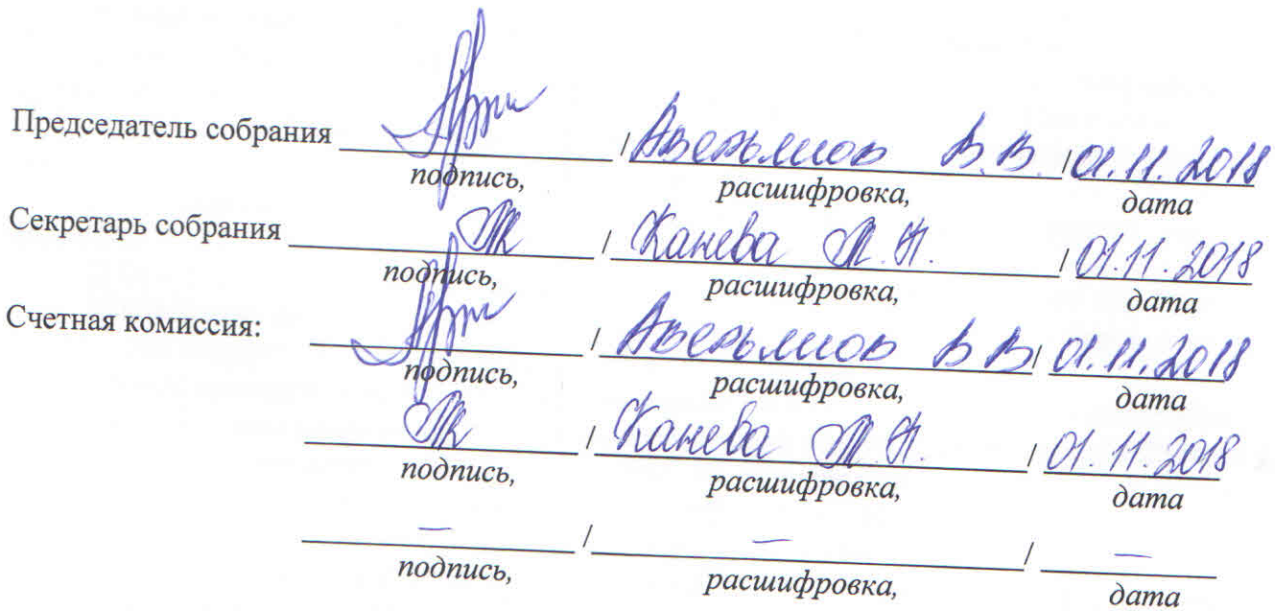 Председатель собрания / Аверьянов В.В. / 01.11.2018
подпись, расшифровка, дата
Секретарь собрания / Канева Т.П. / 01.11.2018
подпись, расшифровка, дата
Счетная комиссия: / Аверьянов В В / 01.11.2018
подпись, расшифровка, дата
/ Канева Т.П. / 01.11.2018
подпись, расшифровка, дата
– / – / –
подпись, расшифровка, дата